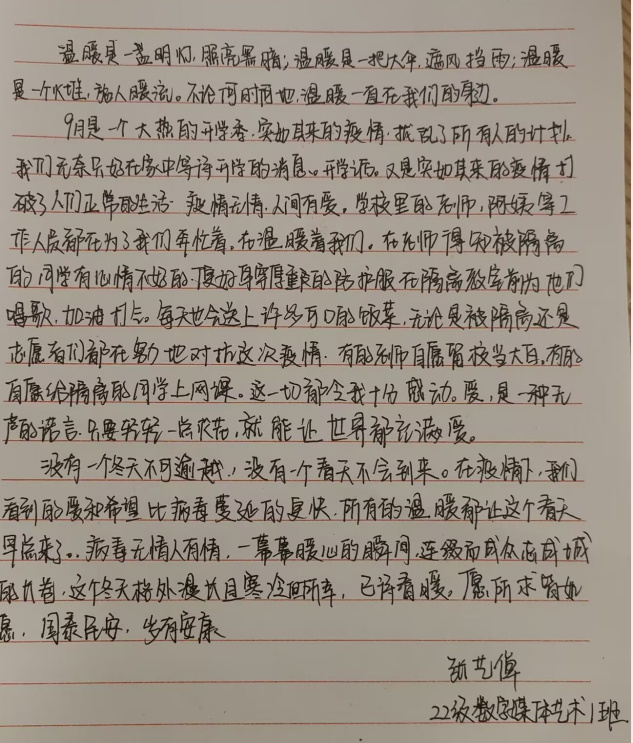 温暖是一盏明灯,照亮黑暗;温暖是一把大伞,遮风挡雨;温暖
是一个火堆,施人暖流。不论何时何地,温暖一直在我们的身边。
9月是一个大热的开学季,突如其来的疫情,扰乱了所有人的计划。
我们无奈只好在家中等待开学的消息。开学后。又是突如其来的疫情打
破了人们正常的生活.疫情无情.人间有爱。学校里的老师,阿姨等工
作人员都在为了我们奔忙着,在温暖着我们。在老师得知被隔离
的同学有心情不好的.便好穿厚重的防护服在隔离教室前为他们
唱歌.加油打气。每天也会送上许多可口的饭菜,无论是被隔离还是
志愿者们都在努力地对抗这次疫情.有的老师自愿留校当大白,有的
自愿给隔离的同学上网课。这一切都令我十分感动。爱,是一种无
声的语言.只要轻轻一点
就能让世界都充满爱。
没有一个冬天不可逾越,没有一个春天不会到来。在疫情下,我们
看到的爱和希望比病毒蔓延的更快.所有的温暖都让这个春天
早点来了..病毒无情人有情,一幕幕暖心的瞬间,连缀而成众志成城
的
这个冬天格外漫长且寒冷但所幸,已
春暖。愿所求皆如
愿,国泰民安,岁有安康
22级数字媒体艺术1班